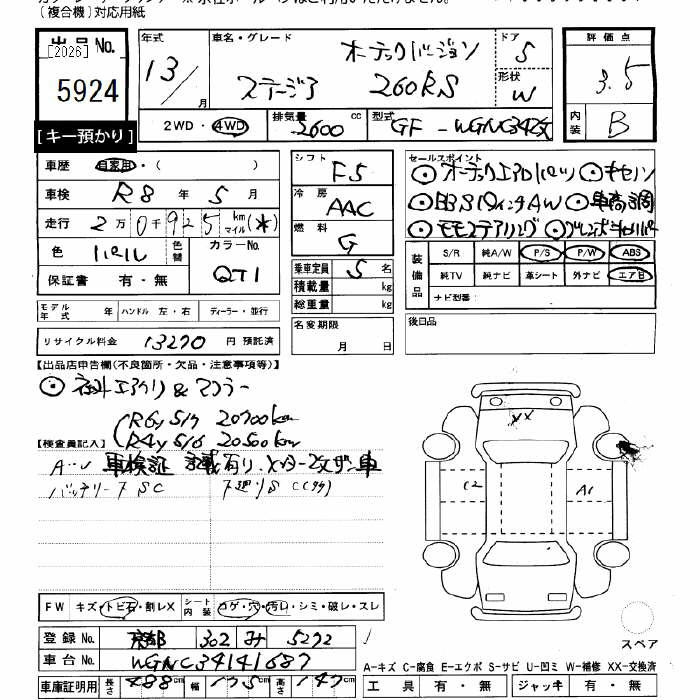 〔複合機〕対応用紙
出品No.
[2026]
5924
【キー預かり】
年式
13/
月
車名・グレード
オーテックバージョン
ステージア 260RS
ドア
5
形状
W
評価点
3.5
内装
B
2WD・4WD
排気量
2600 cc
型式
GF-WGNC34改
車歴 自家用・( )
車検 R8 年 5 月
走行 2万0千925 km マイル (*)
色 パール 色替
カラーNo.
QT1
保証書 有・無
シフト F5
冷房 AAC
燃料 G
乗車定員 5 名
積載量 kg
総重量 kg
セールスポイント
◎オーテックエアロバンパー
◎BBS 18インチAW ◎車高調
◎モモステアリング
装備品
S/R 純A/W P/S P/W ABS
純TV 純ナビ 革シート 外ナビ エアB
ナビ型番:
モデル年式 年 ハンドル 左・右 ディーラー・並行
名変期限
月 日
後日品
リサイクル料金 13270 円 預託済
【出品店申告欄(不良箇所・欠品・注意事項等)】
◎社外エアクリ & マフラー
R6y 5/7 20700km
R4y 5/6 20500km
【検査員記入】
車検証 記載有り、メーター改ざん車
バッテリー
xx
C2
A1
スペア
FW キズ・トビ石・割レX
シート内装 コゲ・穴・汚レ・シミ・破レ・スレ
登録No. 京都 302 み 5272
車台No. WGNC34141687
車庫証明用 長さ 488cm 幅 175cm 高さ 147cm
A-キズ C-腐食 E-エクボ S-サビ U-凹ミ W-補修 XX-交換済
工具 有・無 ジャッキ 有・無